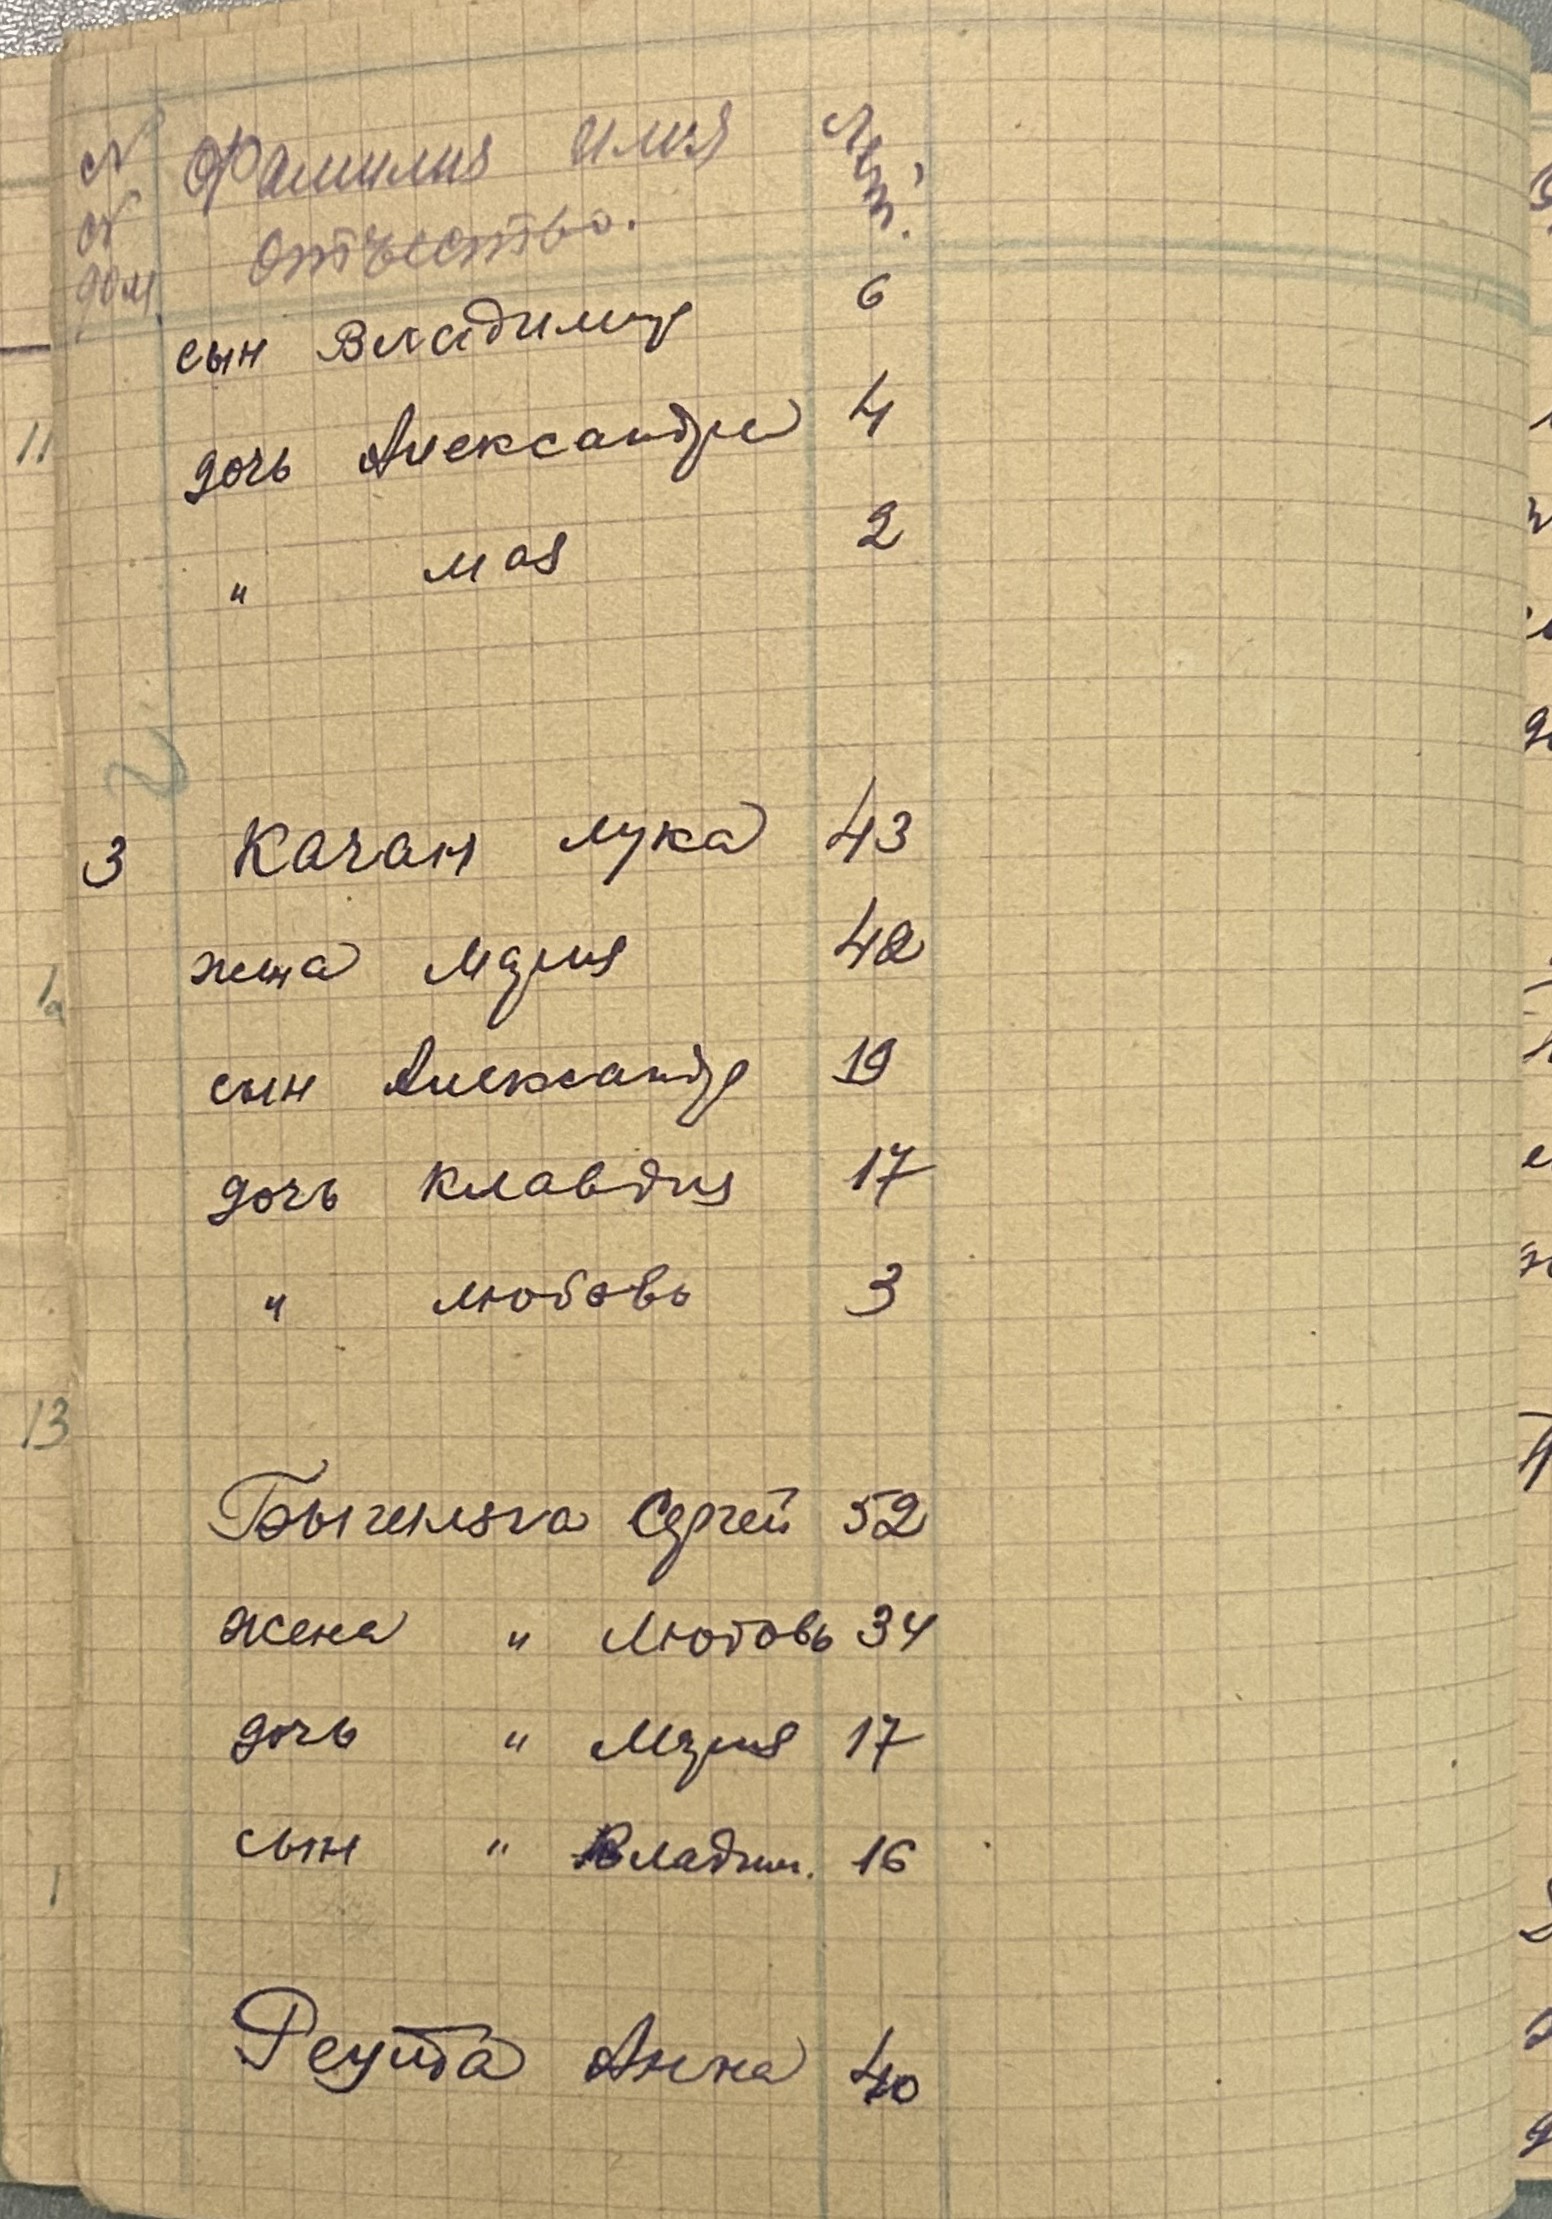 № Фамилия имя Лет.
дом. отчество.
сын Владимир 6
дочь Александра 4
" Мая 2
3 Качан Лука 43
жена Мария 42
сын Александр 19
дочь Клавдия 17
" Любовь 3
Сергей 52
жена " Любовь 34
дочь " Мария 17
сын " Владим. 16
Реута Анна 40
11
1а
13
1